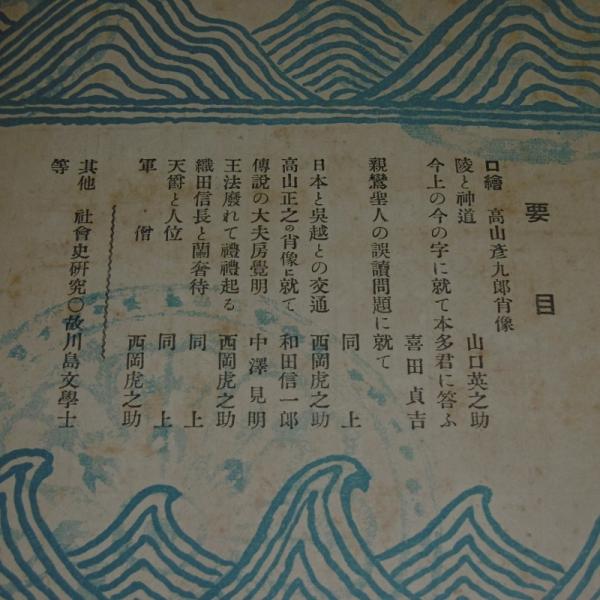 要目
口繪 高山彦九郎肖像
陵と神道 山口英之助
今上の今の字に就て本多君に答ふ
喜田貞吉
親鸞聖人の誤讀問題に就て
同上
日本と吳越との交通 西岡虎之助
高山正之の肖像に就て 和田信一郎
傳説の大夫房覺明 中澤見明
王法廢れて禮禮起る 西岡虎之助
織田信長と蘭奢待 同上
天爵と人位 同上
軍僧 西岡虎之助
其他 社會史研究〇故川島文學士
等